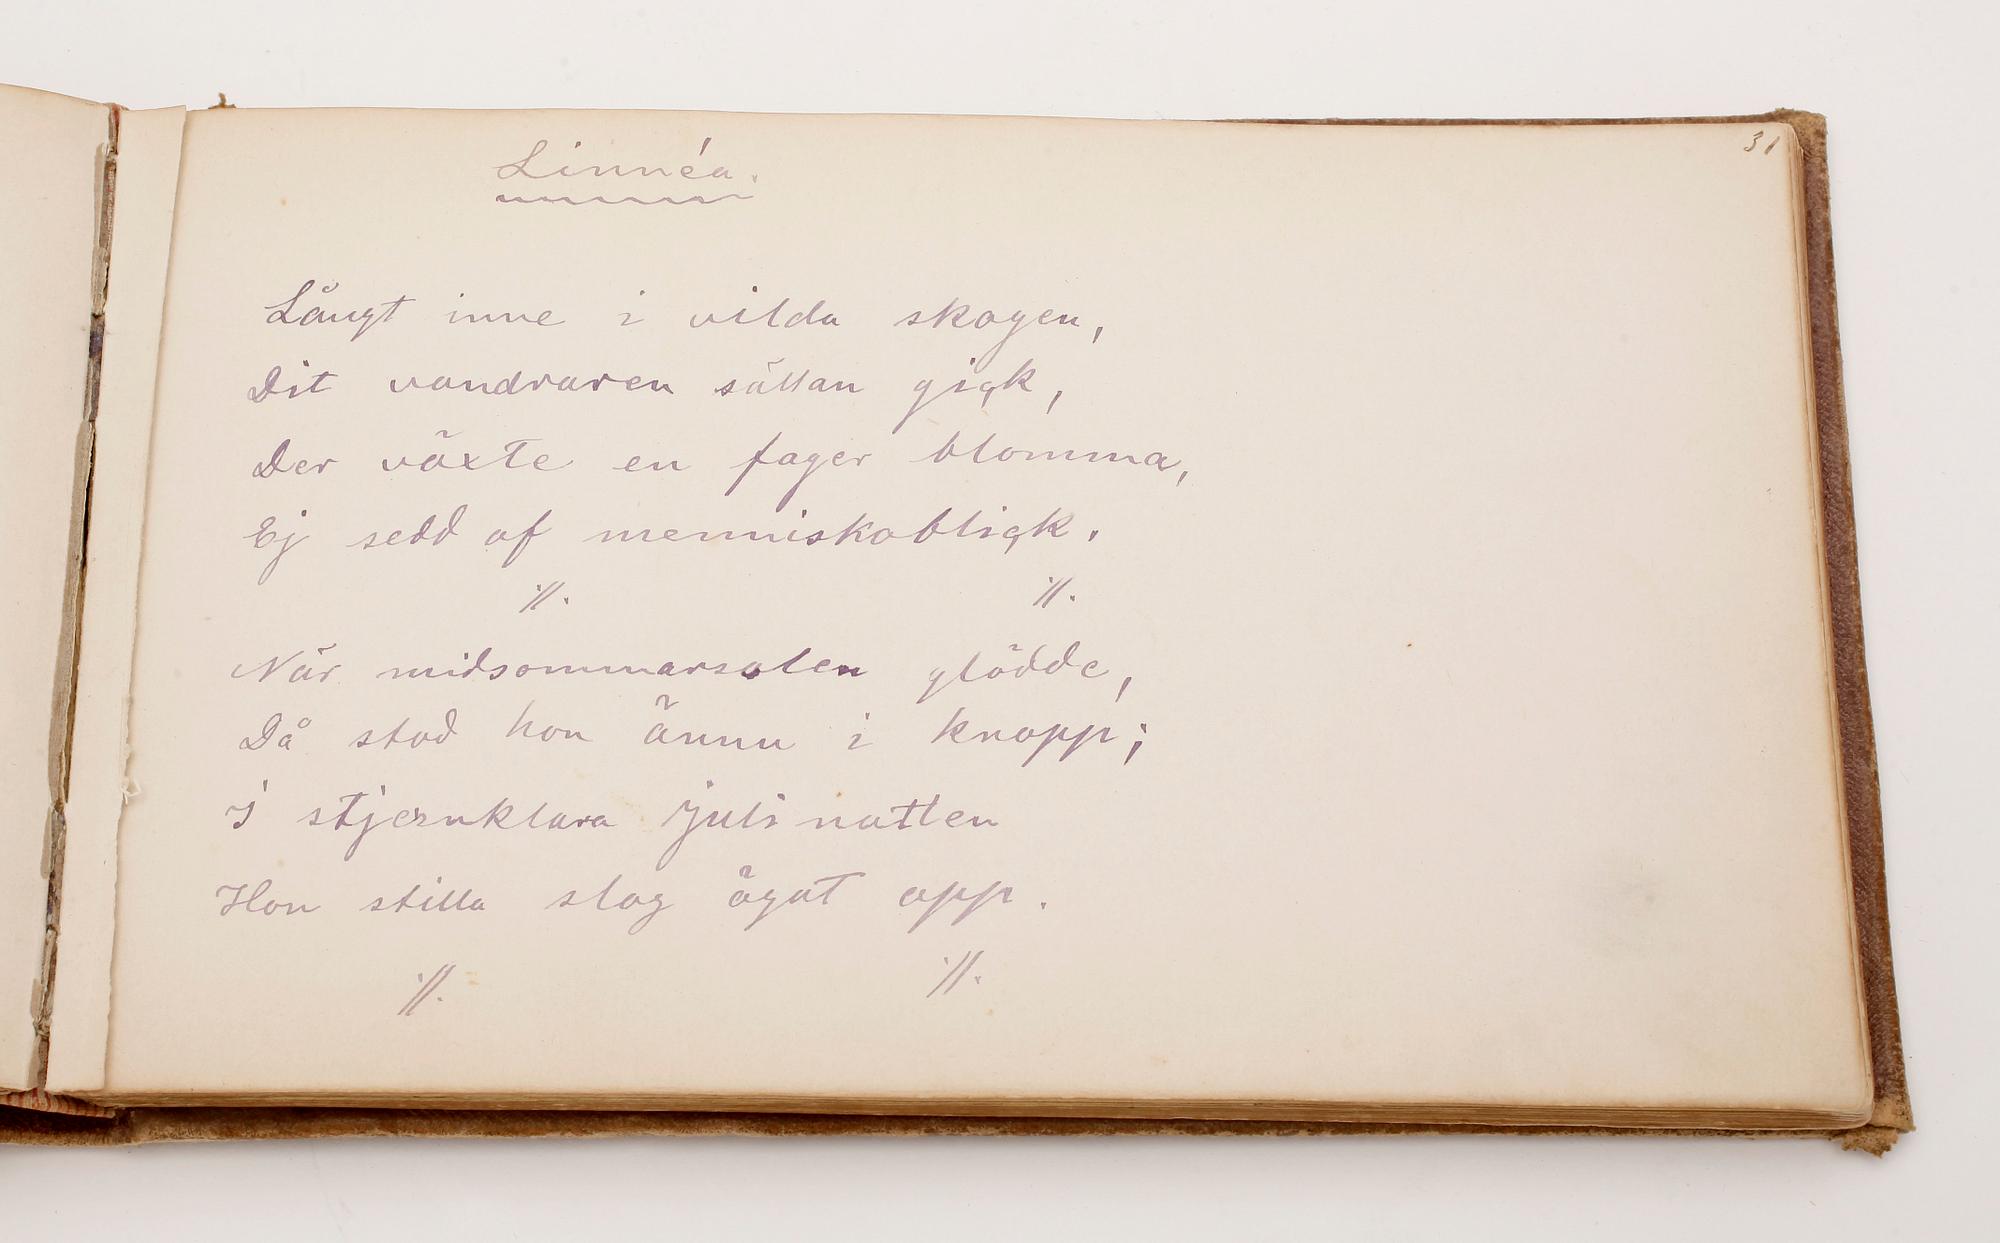 31
Linnéa.
Långt inne i vilda skogen,
Dit vandraren sällan gick,
Der växte en fager blomma,
Ej sedd af menniskoblick.
·//. ·//.
När midsommarsolen glödde,
Då stod hon ännu i knopp;
I stjernklara juli natten
Hon stilla slog ögat opp.
·//. ·//.